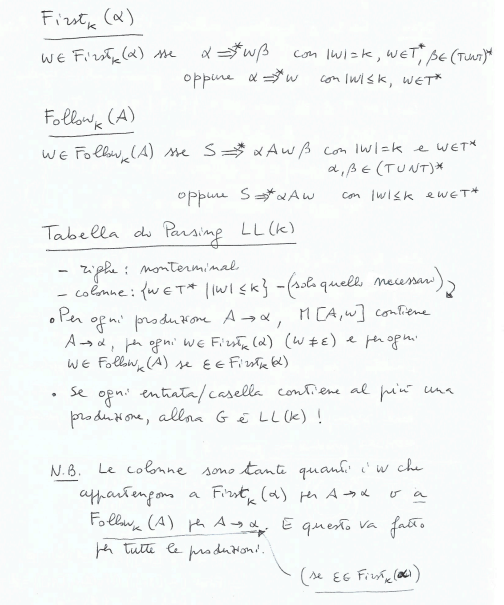 First_k(α)
w ∈ First_k(α) sse α ⇒* wβ con |w|=k, w∈T*, β∈(T∪NT)*
oppure α ⇒* w con |w|≤k, w∈T*
Follow_k(A)
w ∈ Follow_k(A) sse S ⇒* αAwβ con |w|=k e w∈T*
α,β∈(T∪NT)*
oppure S ⇒* αAw con |w|≤k e w∈T*
Tabella di Parsing LL(k)
- righe: nonterminali
- colonne: {w∈T* | |w|≤k} - (solo quelle necessarie)
• Per ogni produzione A→α, M[A,w] contiene
A→α, per ogni w∈First_k(α) (w≠ε) e per ogni
w∈Follow_k(A) se ε∈First_k(α)
• Se ogni entrata/casella contiene al più una
produzione, allora G è LL(k) !
N.B. Le colonne sono tante quanti i w che
appartengono a First_k(α) per A→α o a
Follow_k(A) per A→α. E questo va fatto
per tutte le produzioni.
(se ε∈First_k(α))